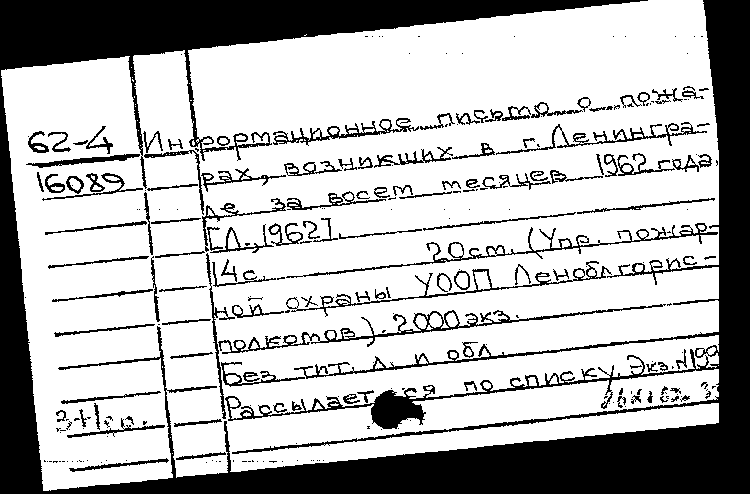 62-4 Информационное письмо о пожа-
16089 рах, возникших в г. Ленингра-
де за восем месяцев 1962 года.
[Л., 1962].
14 с. 20 см. (Упр. пожар-
ной охраны УООП Леноблгорис-
полкомов). 2000 экз.
Без тит. л. и обл.
Рассылается по списку. Экз. N199